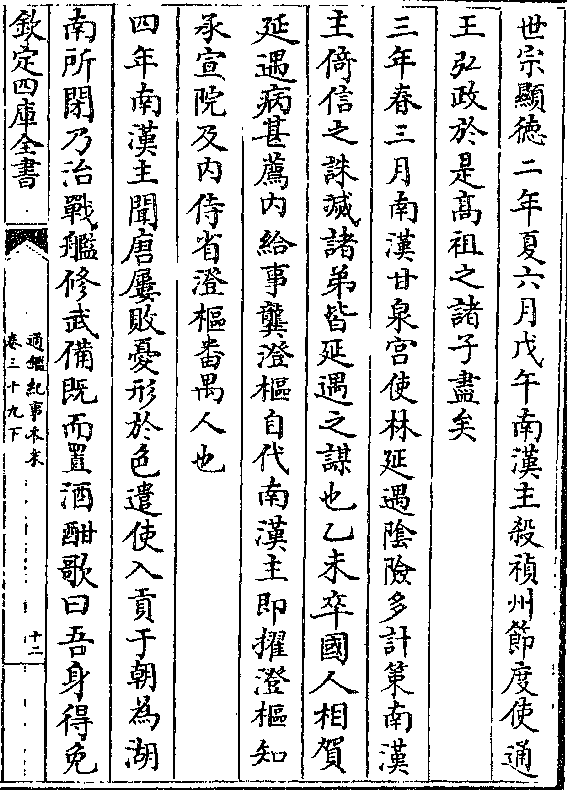 世宗顯徳二年夏六月戊午南漢主殺禎州節度使通
王弘政於是髙祖之諸子盡矣
三年春三月南漢甘泉宮使林延遇隂險多計䇿南漢
主倚信之誅滅諸弟皆延遇之謀也乙未卒國人相賀
延遇病甚薦内給事龔澄樞自代南漢主即擢澄樞知
承宣院及内侍省澄樞畨禺人也
四年南漢主聞唐屢敗憂形於色遣使入貢于朝為湖
南所閉乃治戰艦修武備既而置酒酣歌曰吾身得免
欽定四庫全書
通鑑紀事本末
卷三十九下
十二